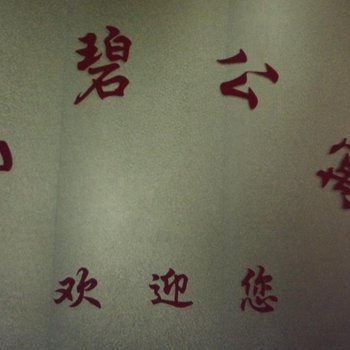 碧公
欢迎您